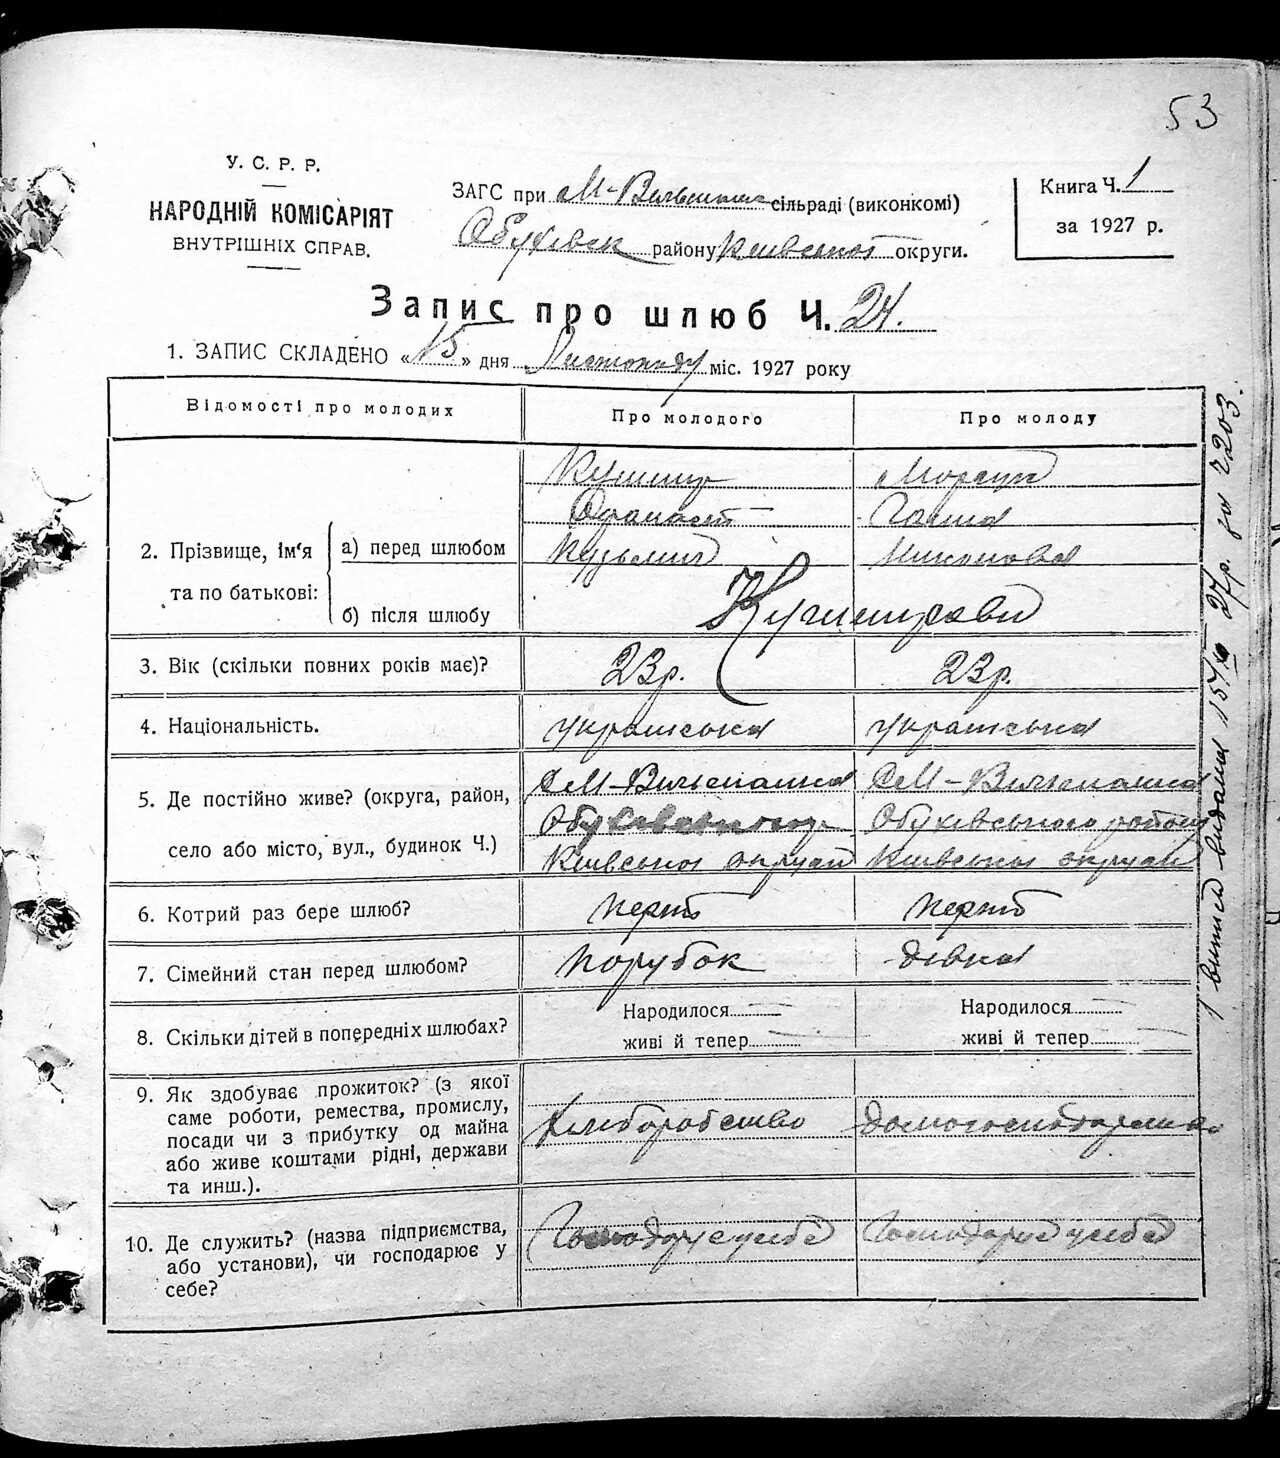 53
У. С. Р. Р.
НАРОДНІЙ КОМІСАРІЯТ
ВНУТРІШНІХ СПРАВ.
ЗАГС при М- сільраді (виконкомі)
Обухівськ району Київської округи.
Книга Ч. 1
за 1927 р.
Запис про шлюб Ч. 24.
1. ЗАПИС СКЛАДЕНО «15» дня Листопаду міс. 1927 року
Відомості про молодих Про молодого Про молоду
2. Прізвище, ім'я та по батькові:
а) перед шлюбом
б) після шлюбу
Кушнир Моргун
Опанас Ганна
Кузьмич Никонова
Кушнирови
3. Вік (скільки повних років має)? 23р. 23р.
4. Національність. українська українська
5. Де постійно живе? (округа, район,
село або місто, вул., будинок Ч.)
с М- с М-
Обухівського району
Київської округи Київської округи
6. Котрий раз бере шлюб? перший перший
7. Сімейний стан перед шлюбом? порубок дівка
8. Скільки дітей в попередніх шлюбах?
Народилося — Народилося —
живі й тепер — живі й тепер —
9. Як здобуває прожиток? (з якої
саме роботи, ремества, промислу,
посади чи з прибутку од майна
або живе коштами рідні, держави
та инш.).
хліборобство домогосподарка
10. Де служить? (назва підприємства,
або установи), чи господарює у
себе?
Господарює у себе Господарює у себе
1 витяг видано 15/XI 27р. за № 203.